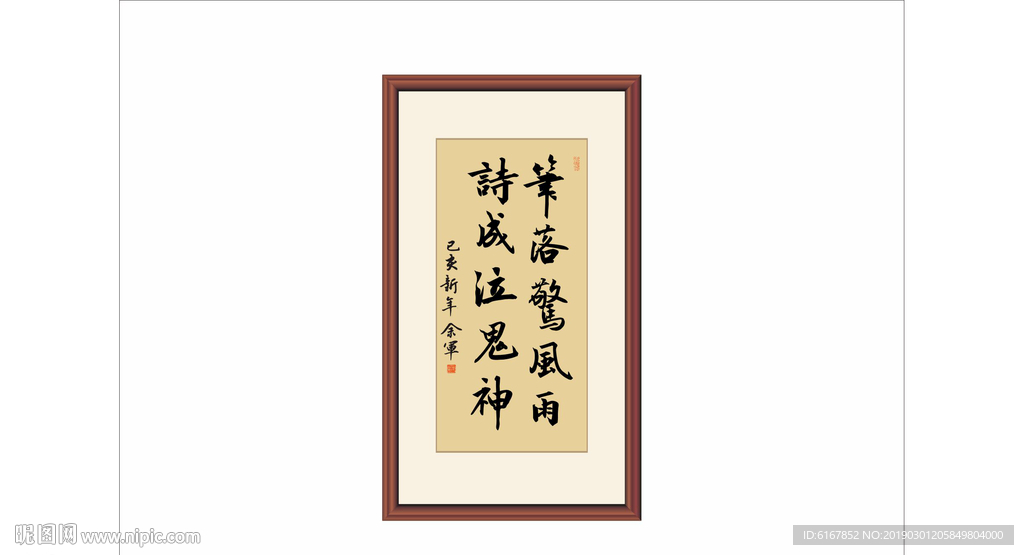 筆落驚風雨
詩成泣鬼神
己亥新年 余軍
昵图网 www.nipic.com
ID:6167852 NO:20190301205849804000